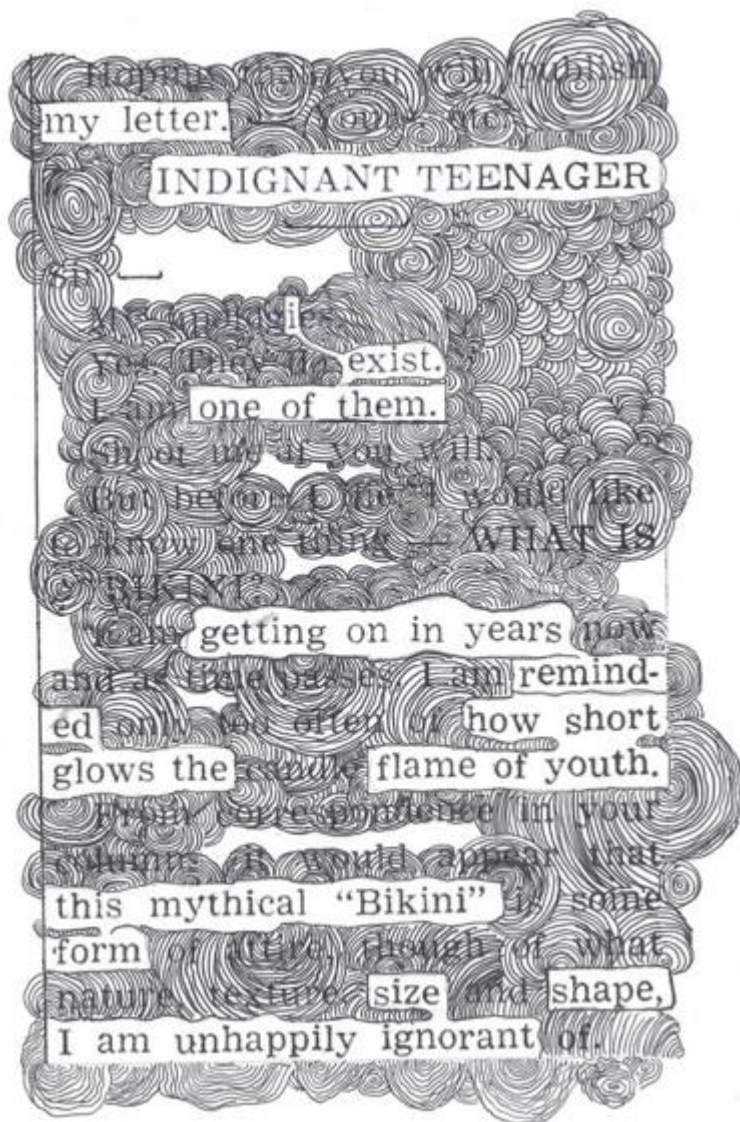 Hoping that you will publish
my letter. — Yours etc.
INDIGNANT TEENAGER
Sir —
My apologies.
Yes. They do exist.
I am one of them.
Shoot me if you will.
But before I die, I would like
to know one thing — WHAT IS
A "BIKINI"?
I am getting on in years now
and as time passes. I am remind-
ed only too often of how short
glows the candle flame of youth.
From correspondence in your
columns it would appear that
this mythical "Bikini" is some
form of attire, though of what
nature, texture, size and shape,
I am unhappily ignorant of.